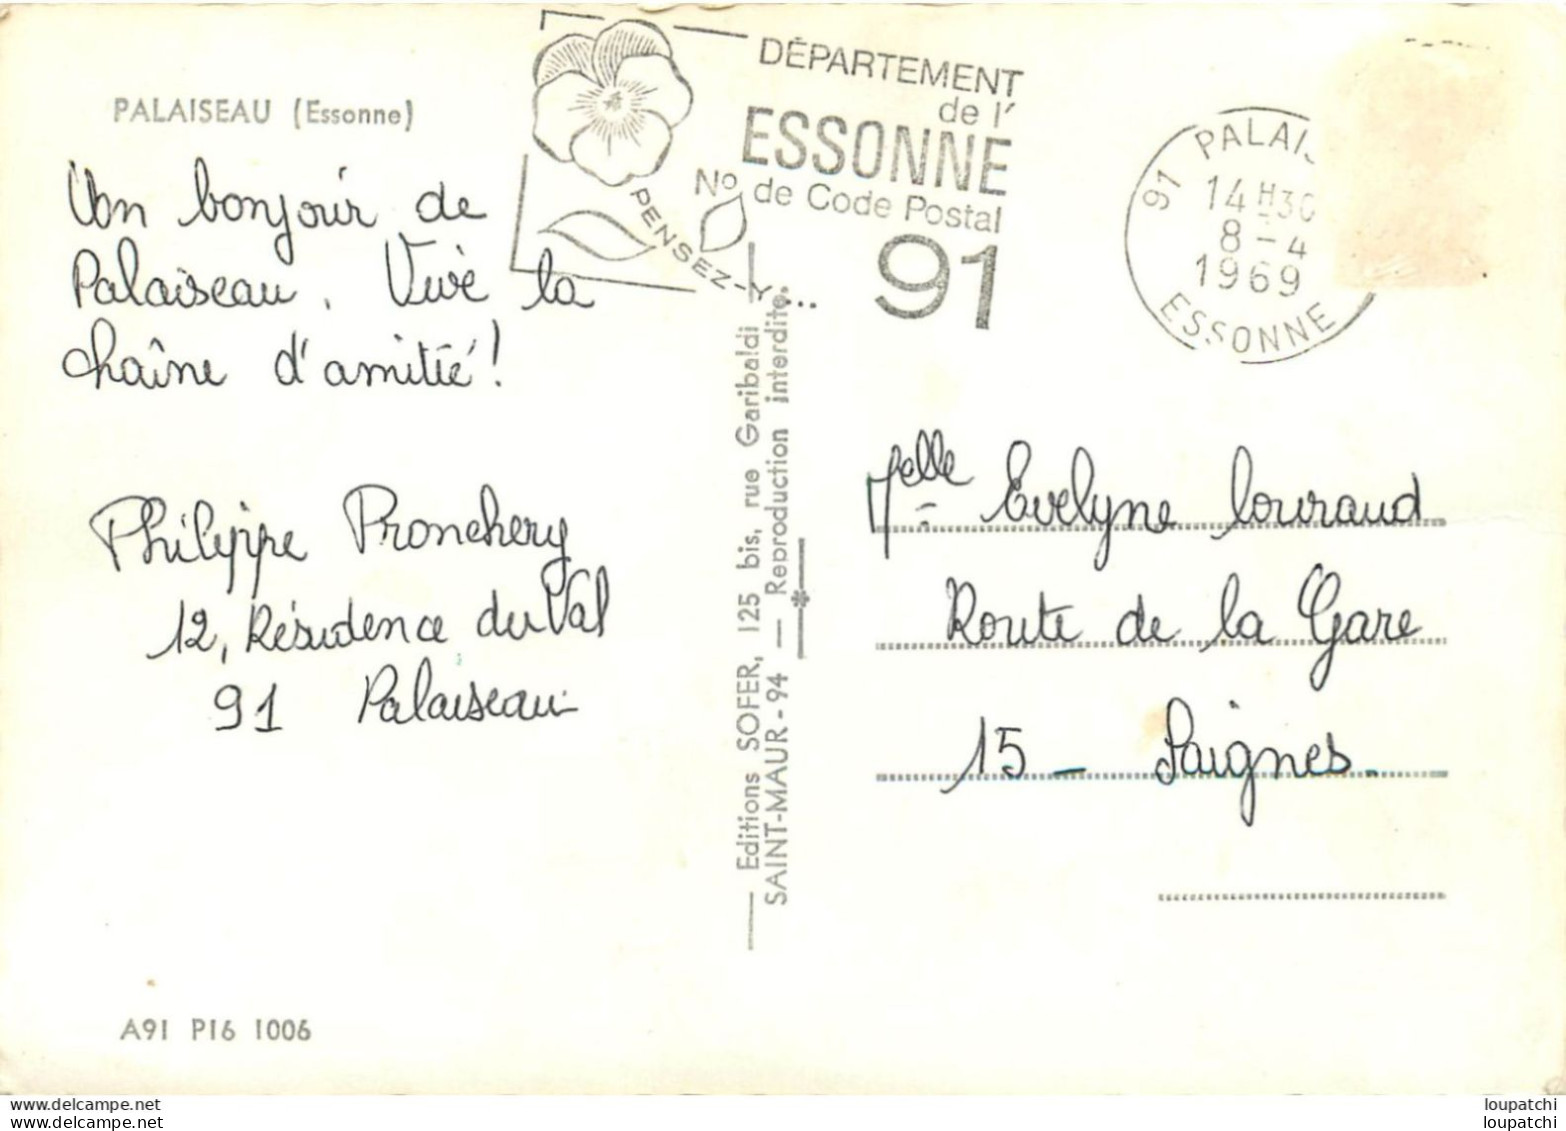 PALAISEAU (Essonne)
Un bonjour de
Palaiseau. Vive la
chaîne d'amitié!
Philippe Pronchery
12, Résidence du Val
91 Palaiseau
A91 P16 1006
DÉPARTEMENT
de l'
ESSONNE
No de Code Postal
91
PENSEZ-Y...
91 PALAIS
14H30
8-4
1969
ESSONNE
Editions SOFER, 125 bis, rue Garibaldi
SAINT-MAUR - 94 — Reproduction interdite.
Melle Evelyne Louvraud
Route de la Gare
15 - Saignes.
loupatchi
loupatchi